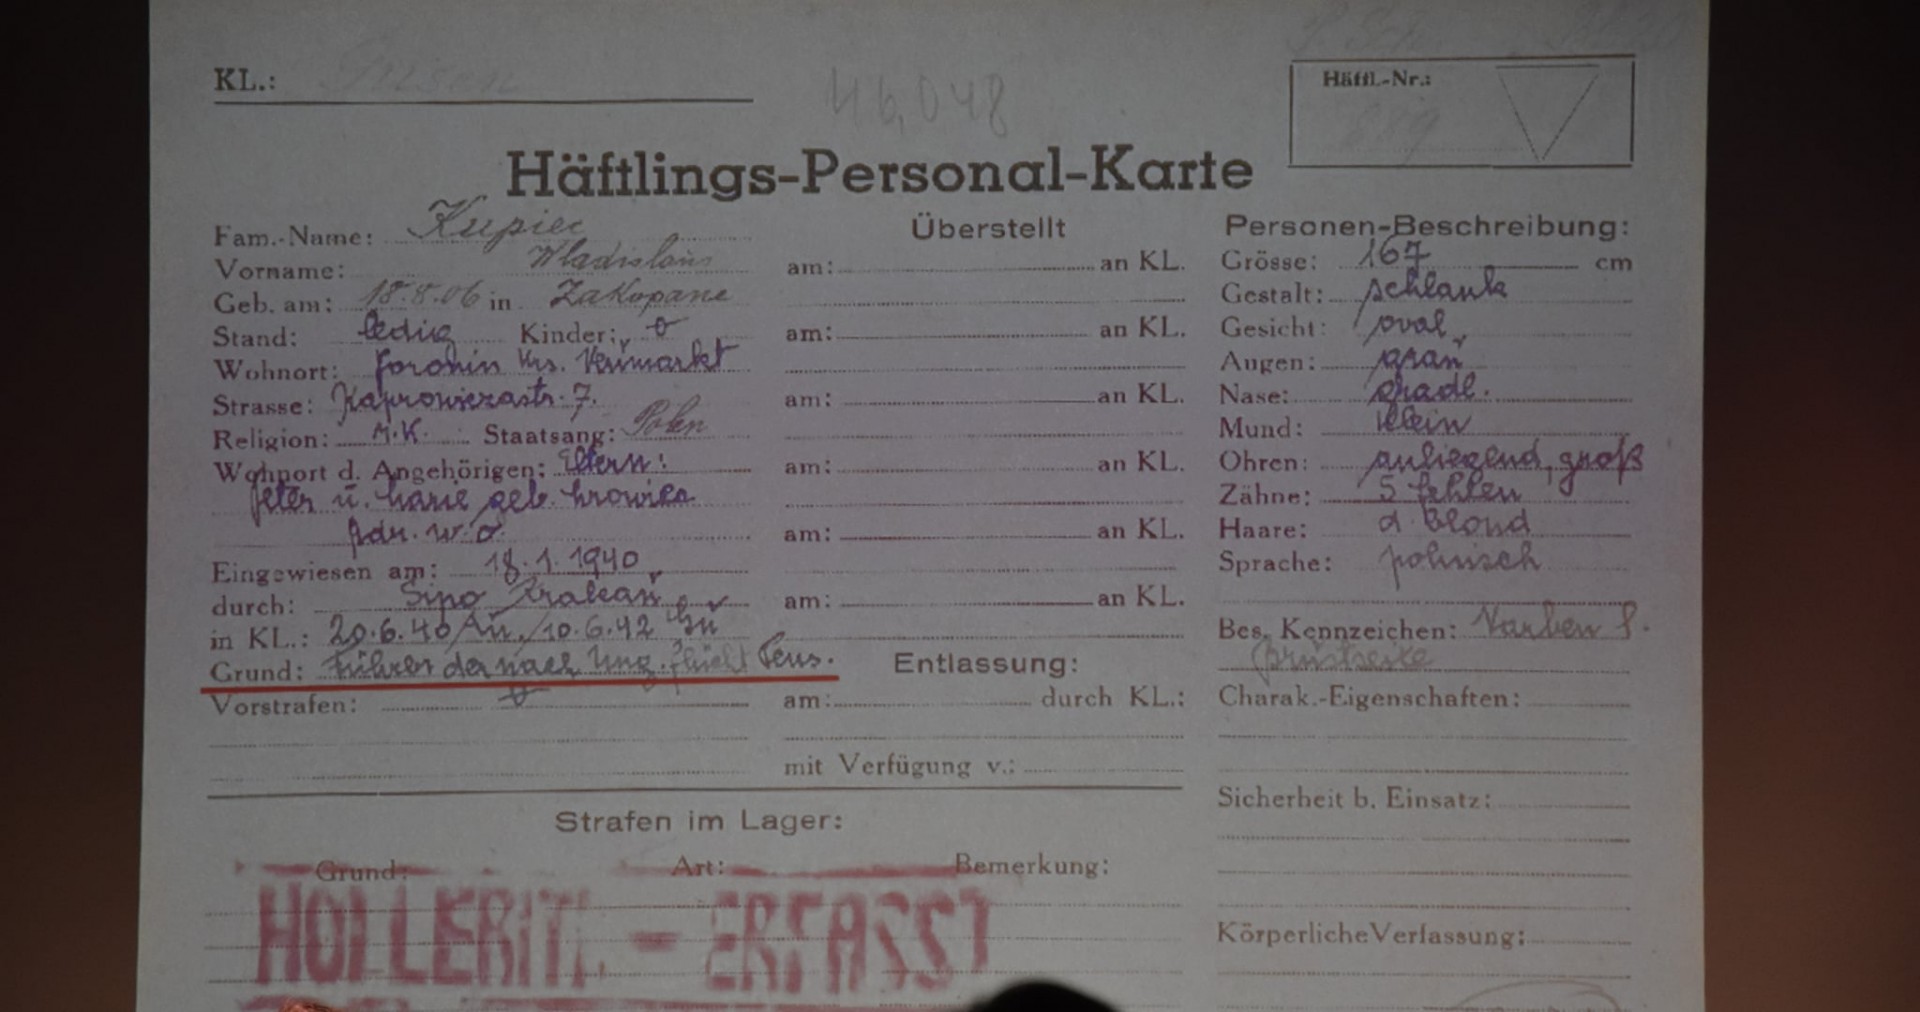 KL.: Gusen
46,048
Häftl.-Nr.: 889
Häftlings-Personal-Karte
Fam.-Name: Kupiec
Vorname: Wladislaus
Geb. am: 18.8.06 in Zakopane
Stand: ledig Kinder: 0
Wohnort: Krs. Neumarkt
Strasse: 7.
Religion: r.K. Staatsang: Polen
Wohnort d. Angehörigen: Eltern:
Peter u. Marie geb.
Adr. w. o.
Eingewiesen am: 18.1.1940
durch: Sipo Krakau
in KL.: 20.6.40 Au./10.6.42 Gu
Grund: Führer der nach Ung. flücht. Pers.
Vorstrafen: 0
Überstellt
am: an KL.
am: an KL.
am: an KL.
am: an KL.
am: an KL.
am: an KL.
Entlassung:
am: durch KL.:
mit Verfügung v.:
Personen-Beschreibung:
Grösse: 167 cm
Gestalt: schlank
Gesicht: oval
Augen: grau
Nase: gradl.
Mund: klein
Ohren: anliegend, groß
Zähne: 5 fehlen
Haare: d. blond
Sprache: polnisch
Bes. Kennzeichen: Narben l.
Brustseite
Charak.-Eigenschaften:
Sicherheit b. Einsatz:
Körperliche Verfassung:
Strafen im Lager:
Grund: Art: Bemerkung:
HOLLERITH - ERFASST